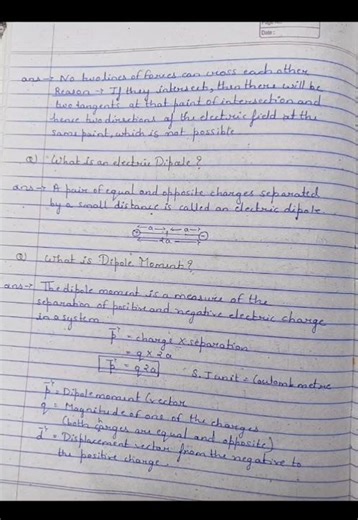 Date :
ans → No two lines of forces can cross each other
Reason → If they intersect, then there will be
two tangents at that point of intersection and
hence two directions of the electric field at the
same point, which is not possible
Q) What is an electric Dipole?
ans → A pair of equal and opposite charges separated
by a small distance is called an electric dipole.
← a → ← a →
+ −
2a
Q) What is Dipole Moment?
ans → The dipole moment is a measure of the
separation of positive and negative electric charge
in a system
p⃗ = charge × separation
= q × 2a
p⃗ = q2a S.I unit = Coulomb metre
p⃗ = Dipole moment (vector
q = Magnitude of one of the charges
(both charges are equal and opposite)
d⃗ = Displacement vector from the negative to
the positive charge.